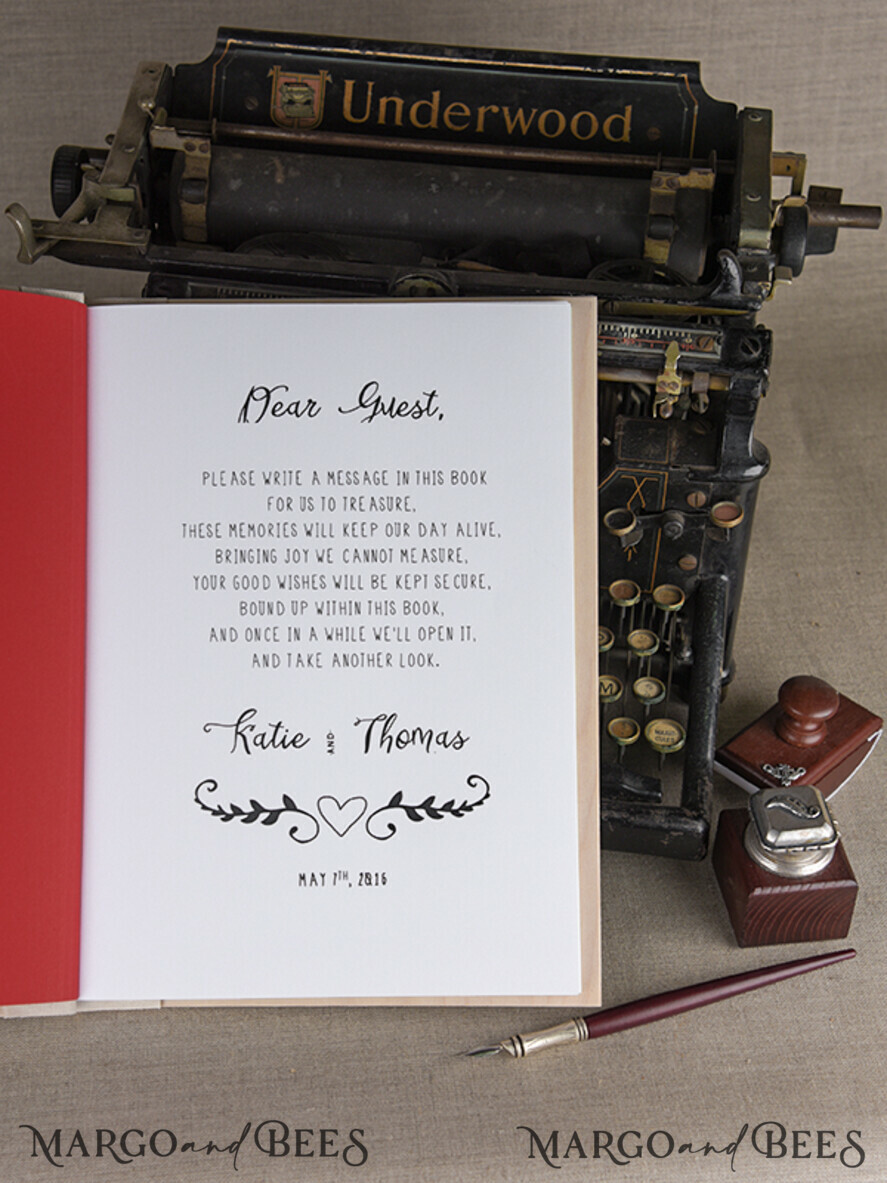 Underwood
Dear Guest,
PLEASE WRITE A MESSAGE IN THIS BOOK
FOR US TO TREASURE,
THESE MEMORIES WILL KEEP OUR DAY ALIVE,
BRINGING JOY WE CANNOT MEASURE,
YOUR GOOD WISHES WILL BE KEPT SECURE,
BOUND UP WITHIN THIS BOOK,
AND ONCE IN A WHILE WE'LL OPEN IT,
AND TAKE ANOTHER LOOK.
Katie AND Thomas
MAY 7TH, 2016
M
MARGO and BEES MARGO and BEES